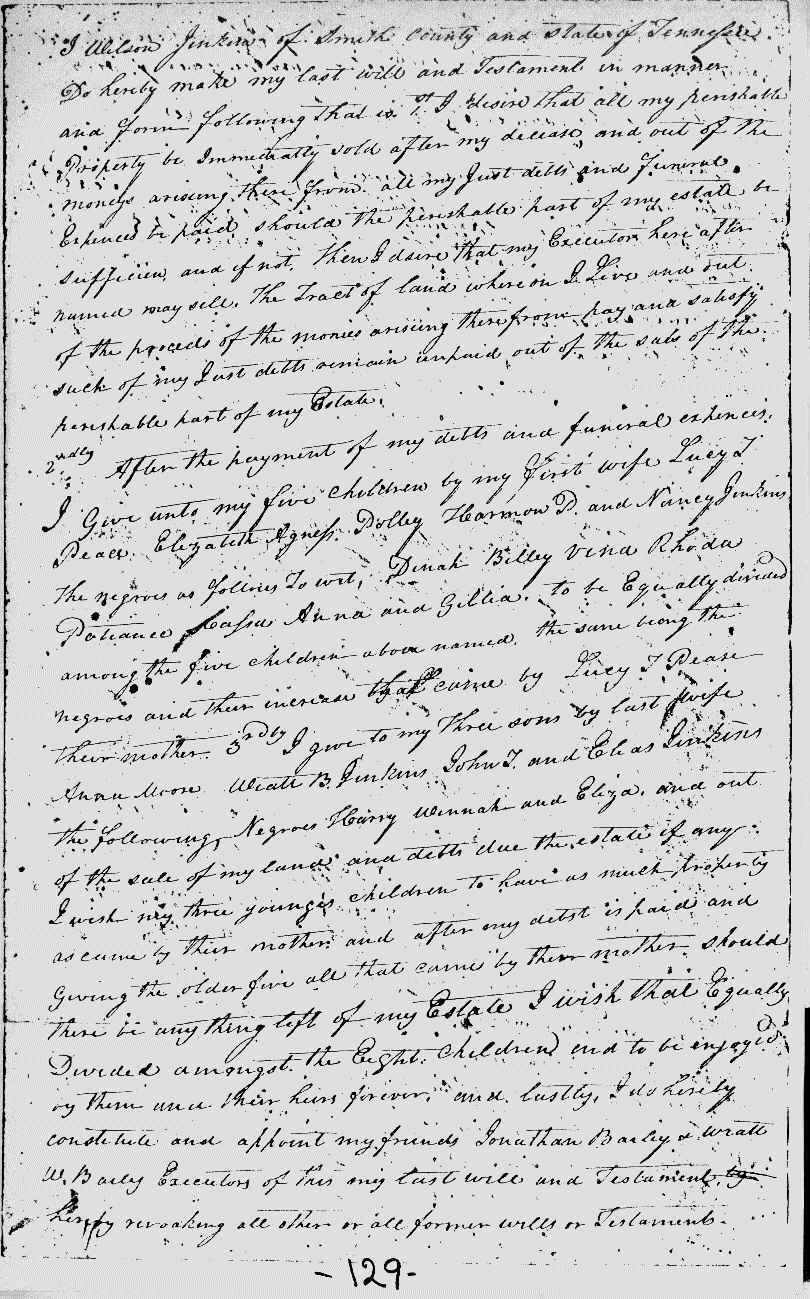 I Wilson Jenkins of Smith County and state of Tennessee
Do hereby make my last will and Testament in manner
and form following that is 1st I desire that all my perishable
Property be Immediatly sold after my decease and out of the
moneys arising there from all my Just debts and funeral
Expences be paid should the perishable part of my estate be
sufficien and if not, then I dsire that my Executors here after
named may sell, the Tract of land whereon I Live and out
of the proceds of the monies arising there from pay and satisfy
such of my Just debts remain unpaid out of the sals of the
perishable part of my Estate.
2ndly After the payment of my debts and funeral expences,
I Give unto my five children by my first wife Lucy T
Peace Elizabeth Agness Dolley Harmon D. and Nancy Jenkins
the negroes as follows To wit, Dinah Billey Vina Rhoda
Patiance Cassa Anna and Gillia, to be Equally divided
among the five children above named, the same being the
negroes and their increase that came by Lucy T Pease
their mother. 3rdly I give to my three sons by last wife
Anna Moore Wiatt B. Jenkins John T. and Elias Jenkins
the following, Negroes Harry Winnah and Eliza, and out
of the sale of my land and debts due the estate if any
I wish my three youngis children to have as much property
as came by their mother and after my debst is paid and
Giving the older five all that came by their mother should
there be any thing left of my Estate I wish that Equally
Divided amongst the Eight Children and to be enjoyed
by them and their heirs forever, and lastly, I do hereby
constitute and appoint my friends Jonathan Bailey & Wiatt
W. Baily Executors of this my last will and Testament by
hereby revoaking all other or all former wills or Testaments.
-129-